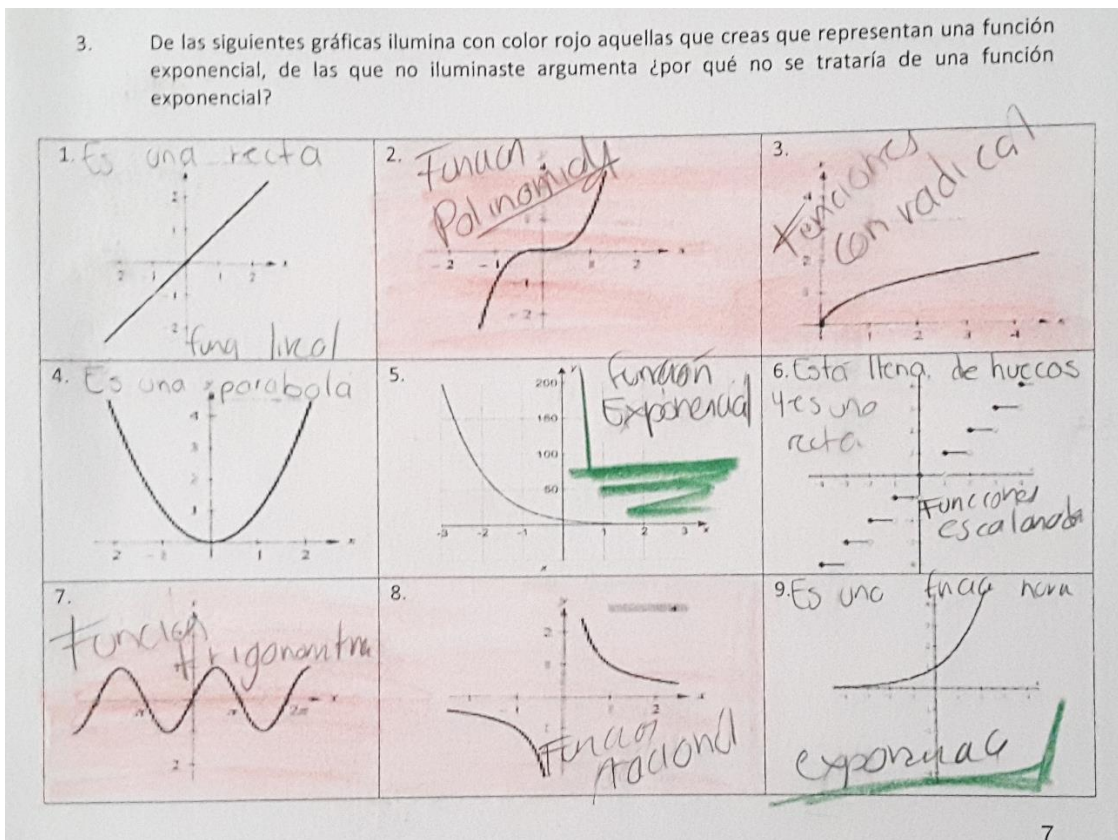 3. De las siguientes gráficas ilumina con color rojo aquellas que creas que representan una función
exponencial, de las que no iluminaste argumenta ¿por qué no se trataría de una función
exponencial?
1. Es una recta
2 1
-2 -1 1 2 x
-1
-2
lineal
2. Función
Polinomial
-2 -1 1 2 x
-1
-2
3. Funciones
con radical
4
2
1 2 3 4 x
4. Es una parabola
4
3
2
1
2 -1 1 2 x
5. Función
Exponencial
200 y
150
100
50
-3 -2 -1 1 2 3 x
6. Esta llena de huecos
y es una
recta
Funciones
escalonada
7.
Función
trigonometri
π π 2π x
2
8.
2
1 2 x
Funcion
racional
9. Es una
7